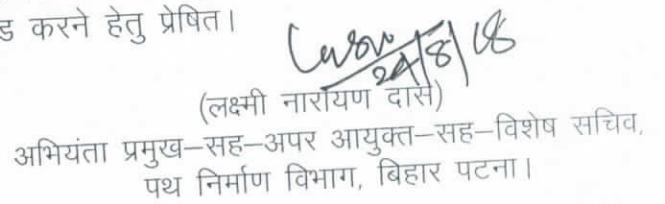 ड करने हेतु प्रेषित।
24/8/18
(लक्ष्मी नारायण दास)
अभियंता प्रमुख–सह–अपर आयुक्त–सह–विशेष सचिव,
पथ निर्माण विभाग, बिहार पटना।